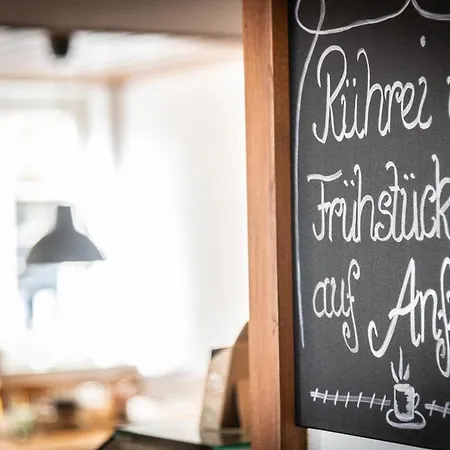 Rührei
Frühstück
auf